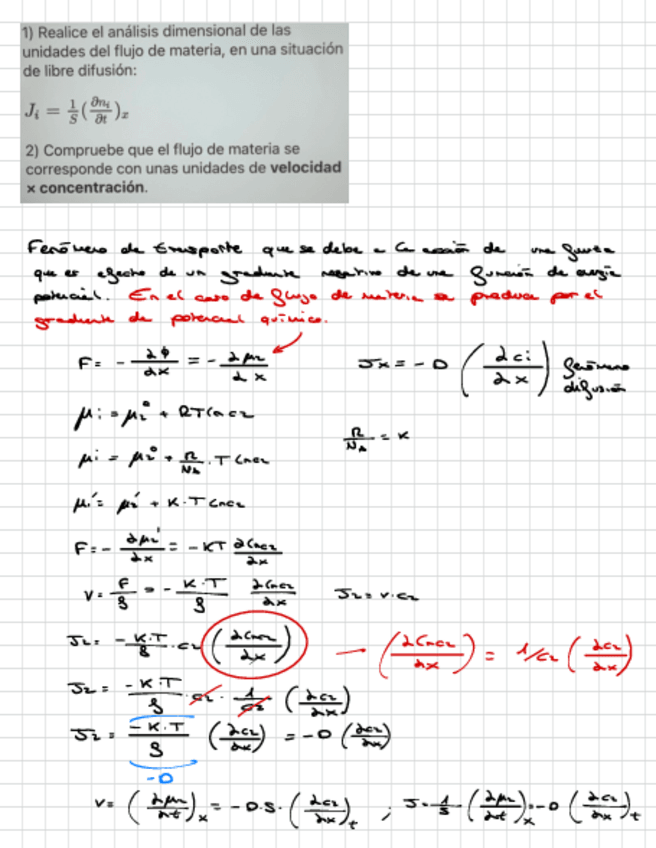 1) Realice el análisis dimensional de las
unidades del flujo de materia, en una situación
de libre difusión:
J_i = 1/S (∂n_i/∂t)_x
2) Compruebe que el flujo de materia se
corresponde con unas unidades de velocidad
x concentración.
Fenómeno de transporte que se debe a la acción de una fuerza
que es efecto de un gradiente negativo de una función de energía
potencial. En el caso de flujo de materia se produce por el
gradiente de potencial químico.
F = - ∂φ/∂x = - ∂μi/∂x
Jx = -D (∂ci/∂x) fenómeno difusión
μi = μi° + RT ln ci
R/NA = K
μi = μi° + R/NA · T ln ci
μi' = μi' + K·T ln ci
F = - ∂μi'/∂x = -KT ∂ln ci/∂x
v = F/f = - K·T/f ∂ln ci/∂x
Ji = v·ci
Ji = -K·T/f · ci (∂ln ci/∂x) — (∂ln ci/∂x) = 1/ci (∂ci/∂x)
Ji = -K·T/f · ci · 1/ci (∂ci/∂x)
Ji = -K·T/f (∂ci/∂x) = -D (∂ci/∂x)
-D
v = (∂ni/∂t)x = -D·S· (∂ci/∂x)t ; J = 1/S (∂ni/∂t)x = -D (∂ci/∂x)t